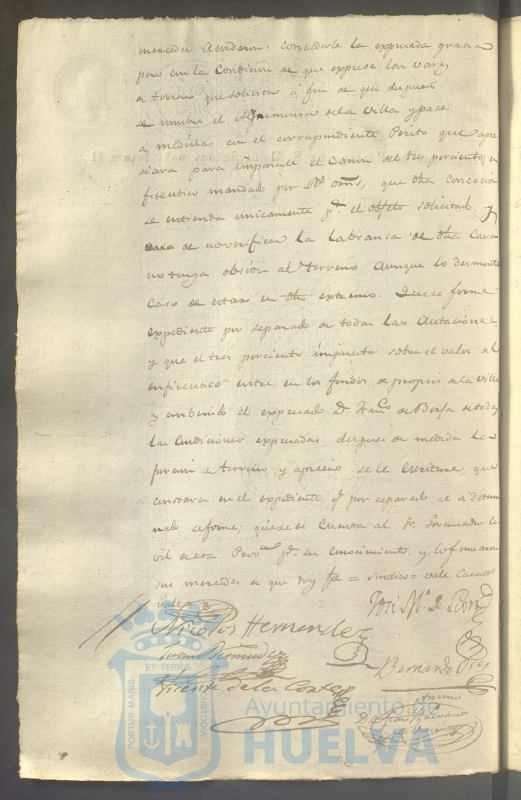 mercedes Acordaron: Concederle la expresada gracia
pero con la condicion de que exprese las varas
de terreno que solicita á fin de que despues
se nombre el Agrimensor de la Villa y pase
á medirlas con el correspondiente Perito que apre
ciara para imponerle el Canon del tres porciento en
fiteutico mandado por Rs. omˢ, que dha concecion
se entienda unicamente pª. el objeto solicitado y
de no verificar la labransa de dha Casa
no tenga obsion al terreno aunque lo desmonte
Caso de estar en dho extremo: Que se forme
expediente por separado de todas las
y que el tres porciento impuesto sobre el valor del
enfiteutico entre en los fondos de propios de la Villa
y el expresado D. Franco. de Borja de todas
las condiciones expresadas, despues de medida la
de terreno y aprecio se le Escriture, que
constara en el expediente q. por separado se a determi
nado se forme; que se de cuenta al Sr. Governador Ci
vil de esta Provª. pª. su conocimiento, y lo firmaron
sus mercedes de que doy fe = sindico = vale
vale
José Mª. de
Nicolas Hernandez
Juan Bermudez
Bernardo
Vicente de la Corte
D.
PORTUS MARIS
ET TERRAE
CUSTODIA
Ayuntamiento de
HUELVA